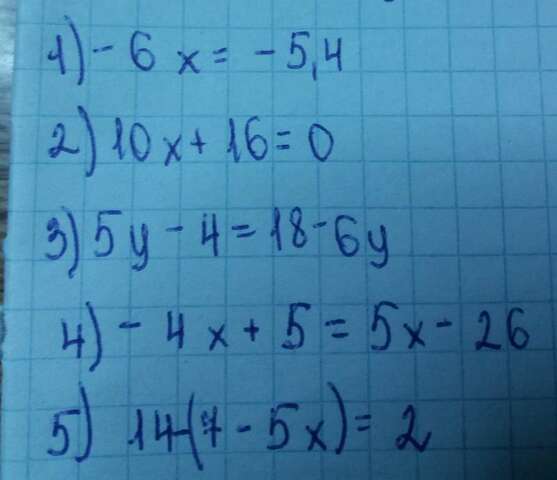 1) - 6 x = - 5,4
2) 10 x + 16 = 0
3) 5y - 4 = 18 - 6y
4) - 4 x + 5 = 5x - 26
5) 14-(7 - 5x) = 2